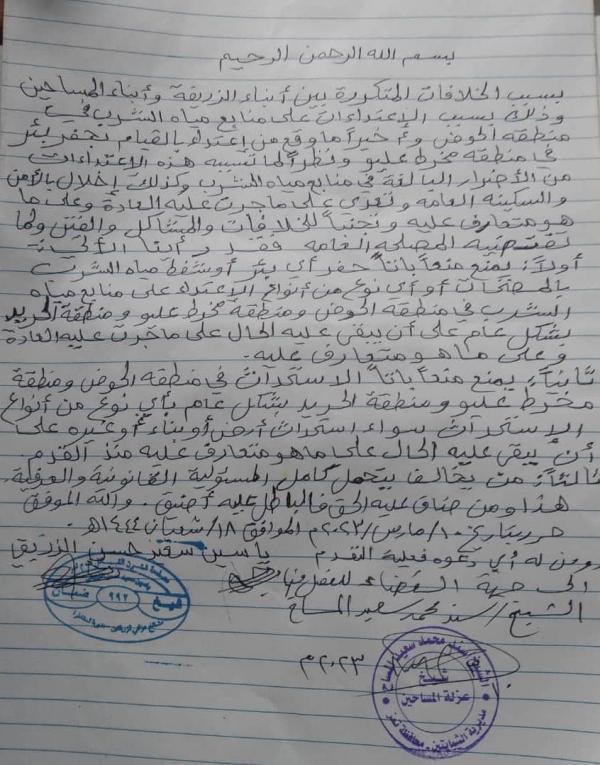 بسم الله الرحمن الرحيم
بسبب الخلافات المتكررة بين أبناء الزريقة وأبناء المساحين
وذلك بسبب الإعتداءات على منابع مياه الشرب في
منطقة الحوض وأخيراً ما وقع من إعتداء بالقيام بحفر بئر
في منطقة مخرط عليو ونظراً لما تسببه هذه الإعتداءات
من الأضرار البالغة في منابع مياه الشرب وكذلك إخلال بالأمن
والسكينه العامه وتعدي على ما جرت عليه العادة وعلى ما
هو متعارف عليه وتجنباً للخلافات والمشاكل والفتن ولما
تقتضيه المصلحه العامه فقد
أولاً: يمنع منعاً باتاً حفر أي بئر أو شفط مياه الشرب
بالمضخات أو أي نوع من أنواع الإعتداء على منابع مياه
الشرب في منطقة الحوض ومنطقة مخرط عليو ومنطقة الحريد
بشكل عام على أن يبقى عليه الحال على ما جرت عليه العادة
وعلى ما هو متعارف عليه.
ثانياً: يمنع منعاً باتاً الاستحداث في منطقة الحوض ومنطقة
مخرط عليو ومنطقة الحريد بشكل عام بأي نوع من أنواع
الإستحداث سواء استحداث أرض أو بناء أو غيره على
أن يبقى عليه الحال على ما هو متعارف عليه منذ القدم.
ثالثاً: من يخالف يتحمل كامل المسئولية القانونية والعرفية.
هذا ومن ضاق عليه الحق فالباطل عليه أضيق. والله الموفق
حرر بتاريخ ١٠/مارس/٢٠٢٣م الموافق ١٨/شعبان/١٤٤٤هـ.
ومن له أي دعوه فعليه التقدم ياسين سفنر حسن الزريقي
الى جهة القضاء للفصل فيها
الشيخ/سند محمد سعيد المساح
٩٩٢
٢٠٢٣م
الشيخ سند محمد سعيد المساح
شيخ
عزلة المساحين
مديرية الشمايتين - محافظة تعز